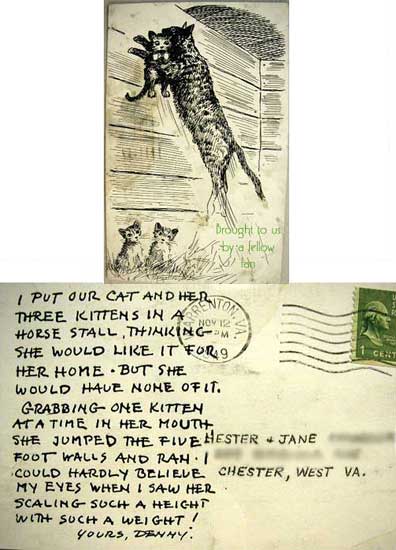 Brought to us
by a fellow
fan
I PUT OUR CAT AND HER
THREE KITTENS IN A
HORSE STALL, THINKING
SHE WOULD LIKE IT FOR
HER HOME. BUT SHE
WOULD HAVE NONE OF IT.
GRABBING ONE KITTEN
AT A TIME IN HER MOUTH
SHE JUMPED THE FIVE
FOOT WALLS AND RAN. I
COULD HARDLY BELIEVE
MY EYES WHEN I SAW HER
SCALING SUCH A HEIGHT
WITH SUCH A WEIGHT!
YOURS, DENNY.
WARRENTON, VA.
NOV 12
PM
1949
1 CENT
HESTER & JANE
CHESTER, WEST VA.